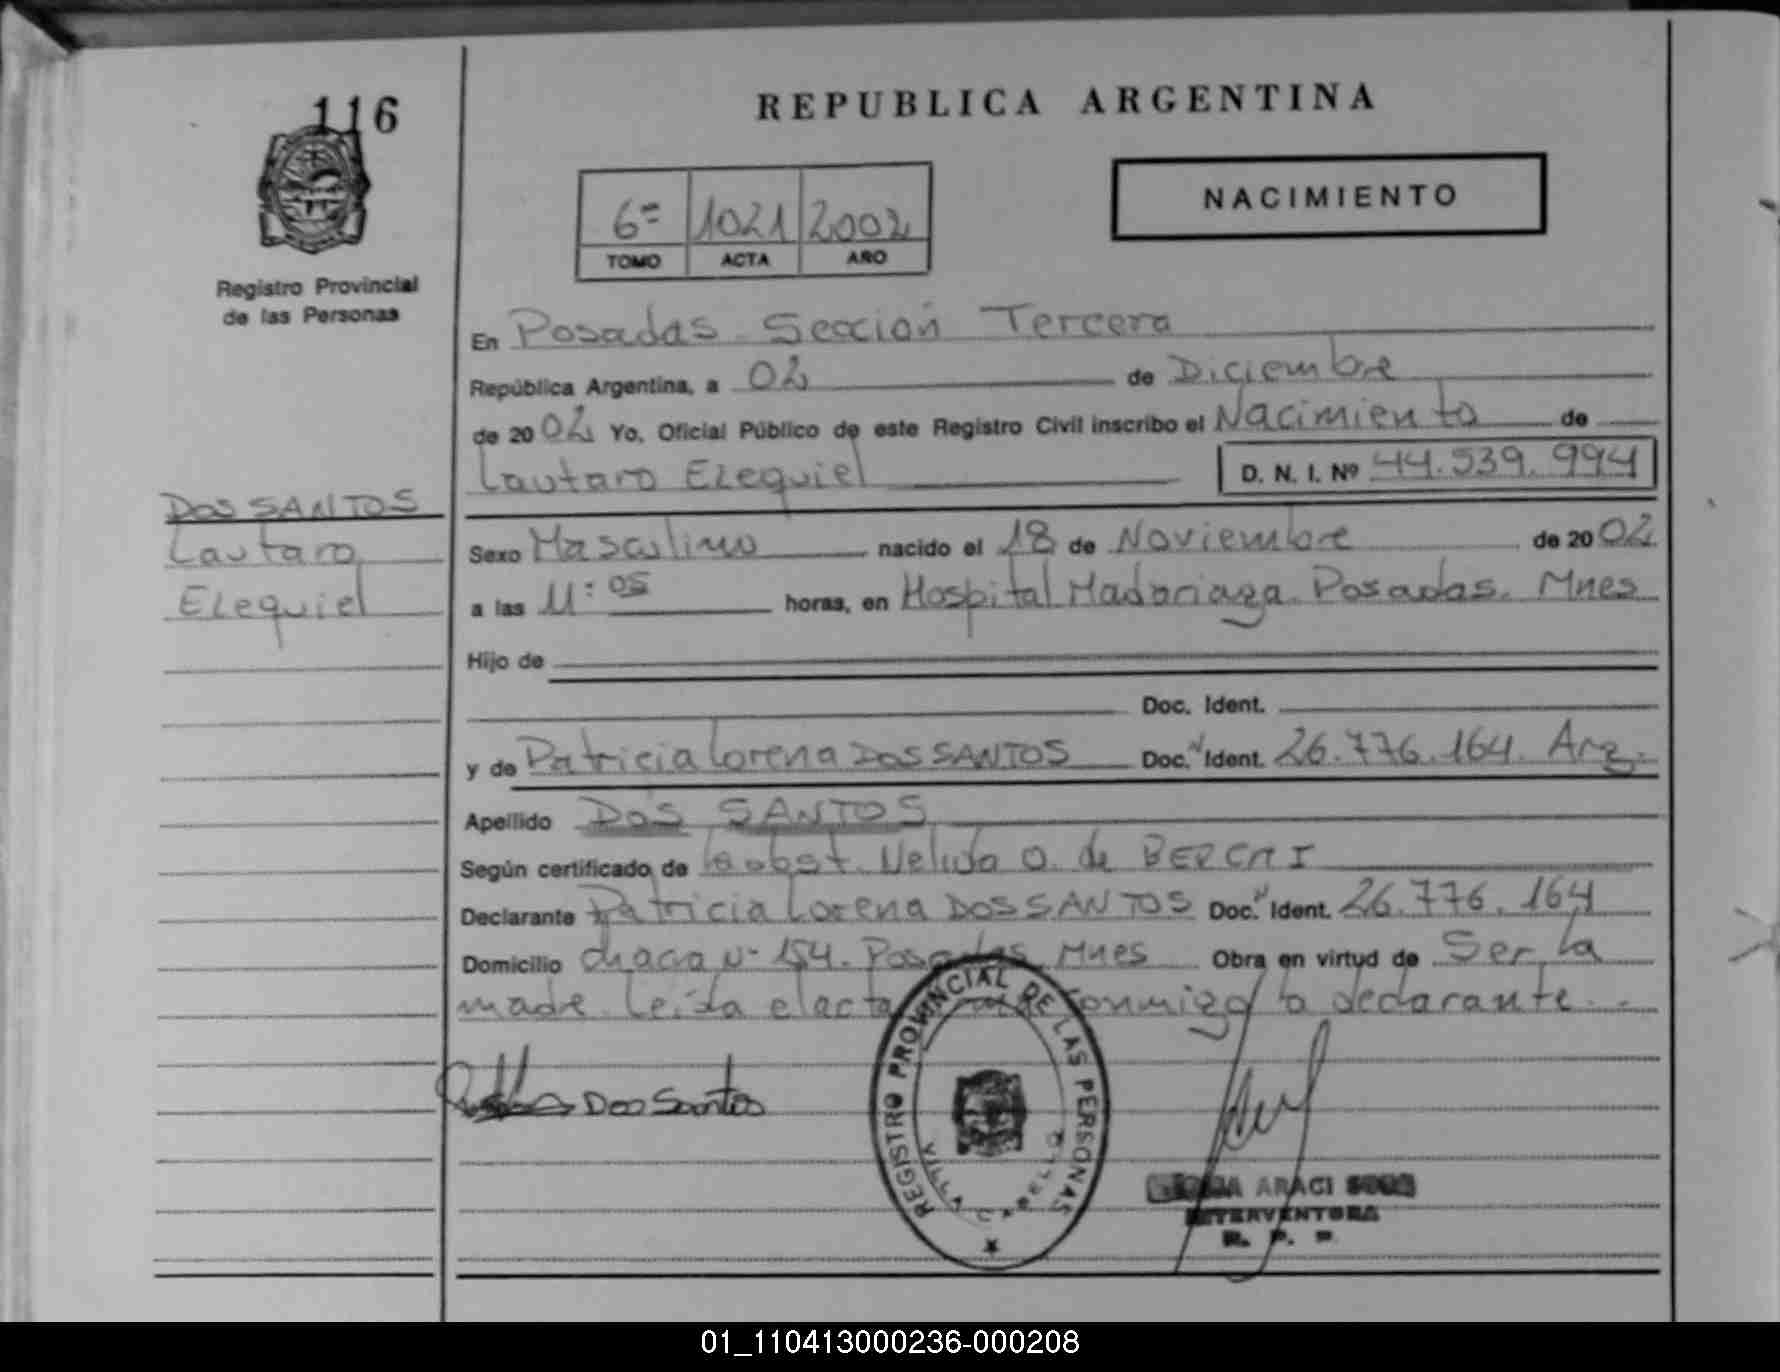 116
REPUBLICA ARGENTINA
NACIMIENTO
6º 1021 2002
TOMO ACTA AÑO
Registro Provincial
de las Personas
En Posadas Sección Tercera
República Argentina, a 02 de Diciembre
de 2002 Yo, Oficial Público de este Registro Civil inscribo el Nacimiento de
Lautaro Ezequiel D. N. I. Nº 44.539.994
DOS SANTOS
Lautaro
Ezequiel
Sexo Masculino nacido el 18 de Noviembre de 2002
a las 11:05 horas, en Hospital Madariaga. Posadas. Mnes
Hijo de
Doc. Ident.
y de Patricia Lorena DOS SANTOS Doc. Ident. 26.776.164. Arg.
Apellido DOS SANTOS
Según certificado de la obst. Nelida O. de
Declarante Patricia Lorena DOS SANTOS Doc. Ident. 26.776.164
Domicilio chacra Nº 154. Posadas Mnes Obra en virtud de Ser la
madre. Leída el acta conmigo la declarante.
Dos Santos
REGISTRO PROVINCIAL DE LAS PERSONAS
VILLA CABELLO
ARACI
INTERVENTORA
R. P. P.
01_110413000236-000208